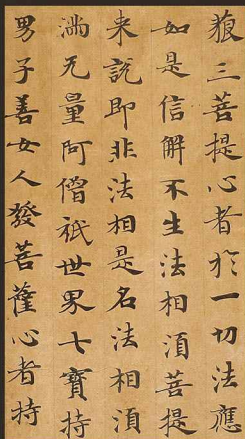 狼三菩提心者於一切法應
如是信解不生法相湏菩提
来説即非法相是名法相湏
滿无量阿僧祇世界七寶持
男子善女人發菩薩心者持